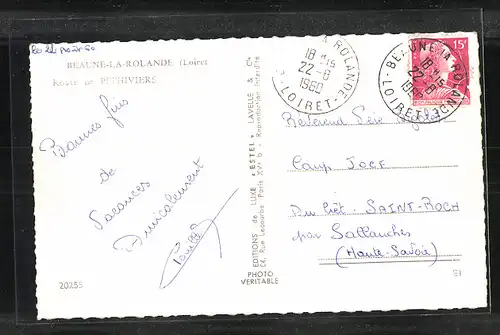 BEAUNE-LA-ROLANDE (Loiret
Route de PITHIVIERS
Bonnes fins
de
Vacances
Amicalement
20255
EDITIONS de LUXE "ESTEL" LAVELLE & Cie
64, Rue Lecourbe Paris XVe - Reproduction Interdite
PHOTO
VERITABLE
ROLANDE
18 H15
22-8
1960
LOIRET
BEAUNE LA ROLANDE
18 H15
22-8
1960
LOIRET
15F
Révérend Père
Camp JOCF
SAINT-ROCH
par Sallanches
(Haute-Savoie)